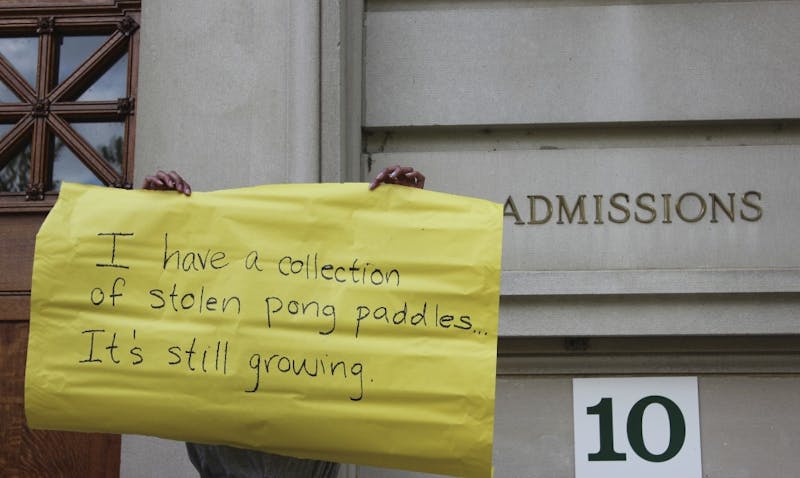 I have a collection
of stolen pong paddles...
It's still growing.
ADMISSIONS
10